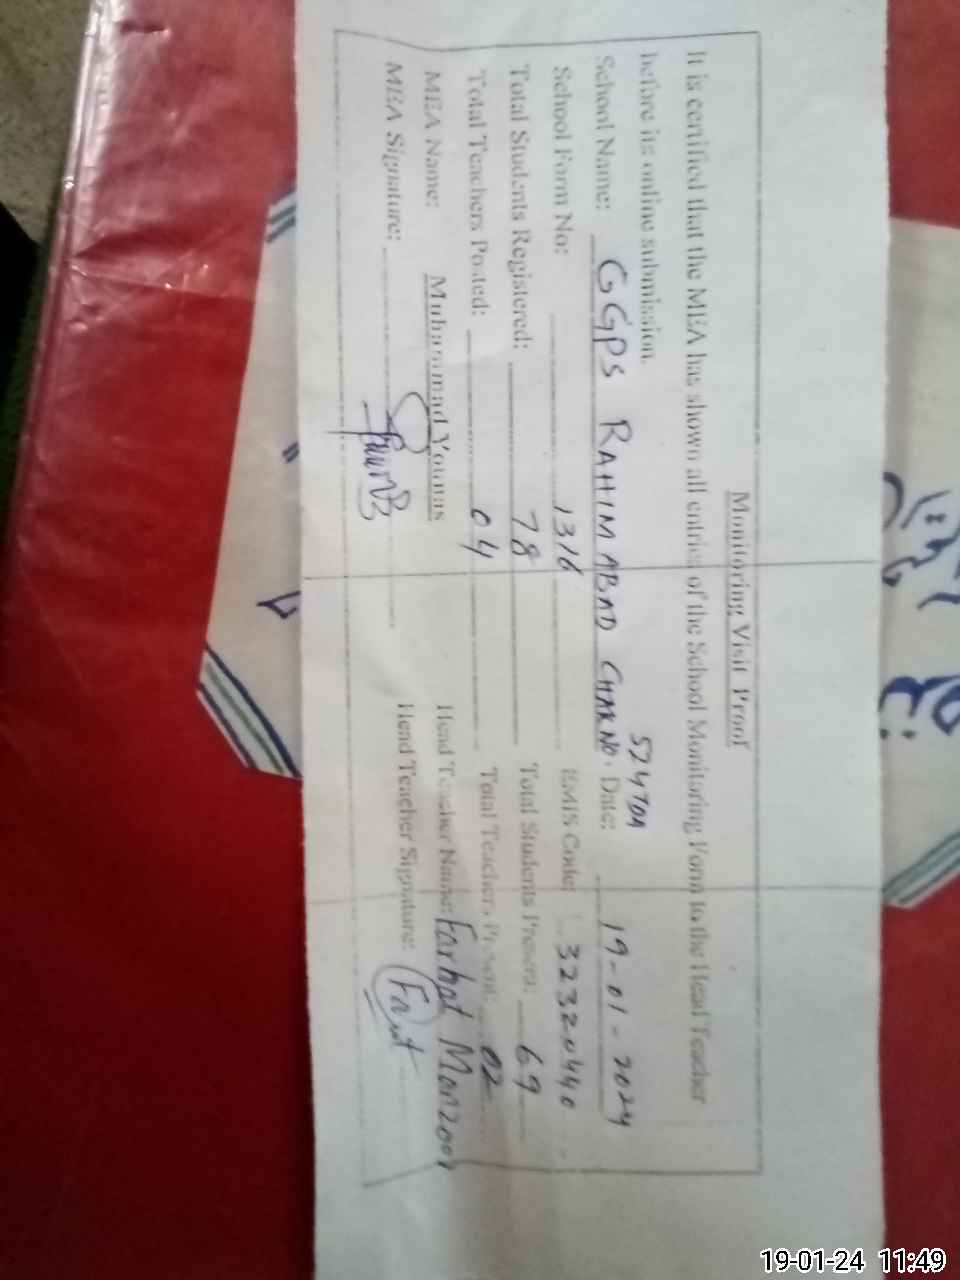 Monitoring Visit Proof
It is certified that the MEA has shown all entries of the School Monitoring Form to the Head Teacher
before its online submission.
School Name: GGPS RAHIM ABAD CHAK NO. 524TDA Date: 19-01-2024
School Form No: 1316 EMIS Code: 32320440
Total Students Registered: 78 Total Students Present: 69
Total Teachers Posted: 04 Total Teachers Present: 02
MEA Name: Muhammad Younas Head Teacher Name: Farhat Manzoor
MEA Signature: Head Teacher Signature:
19-01-24 11:49